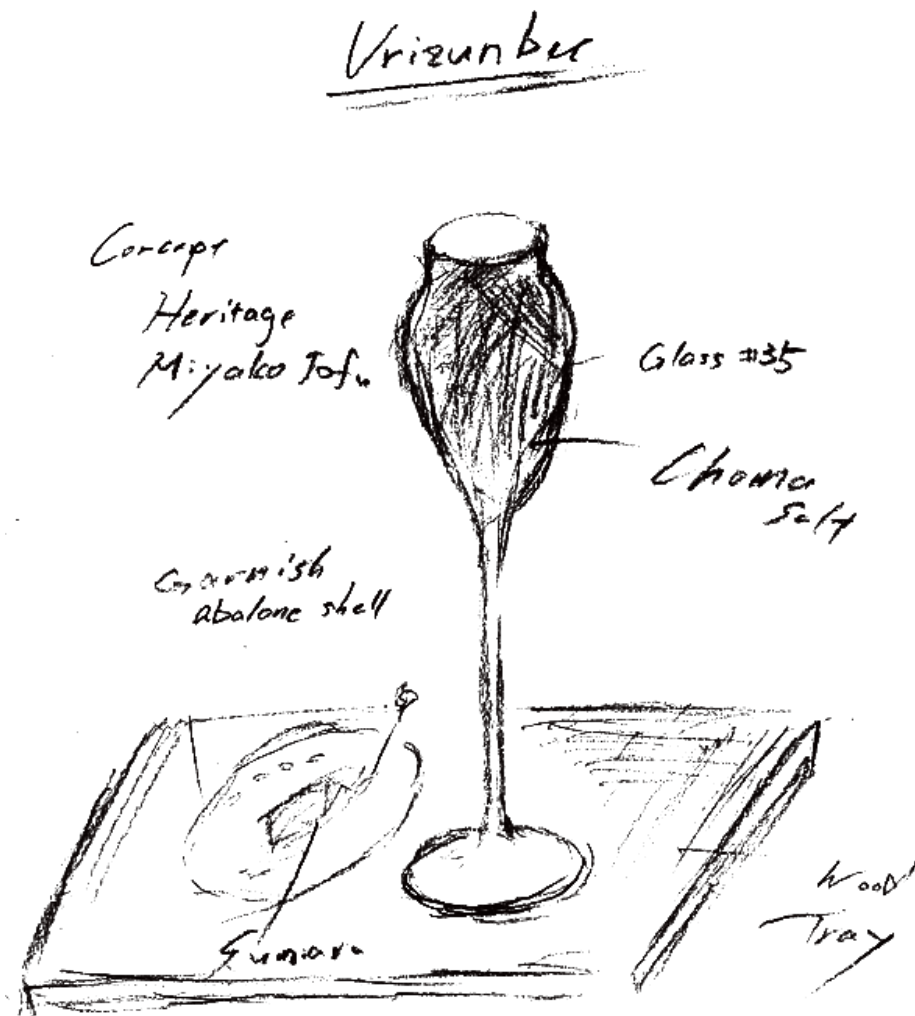 Urizunbee
Concept
Heritage
Miyako Tofu
Glass #35
Choma
Salt
Garnish
abalone shell
Wood
Tray